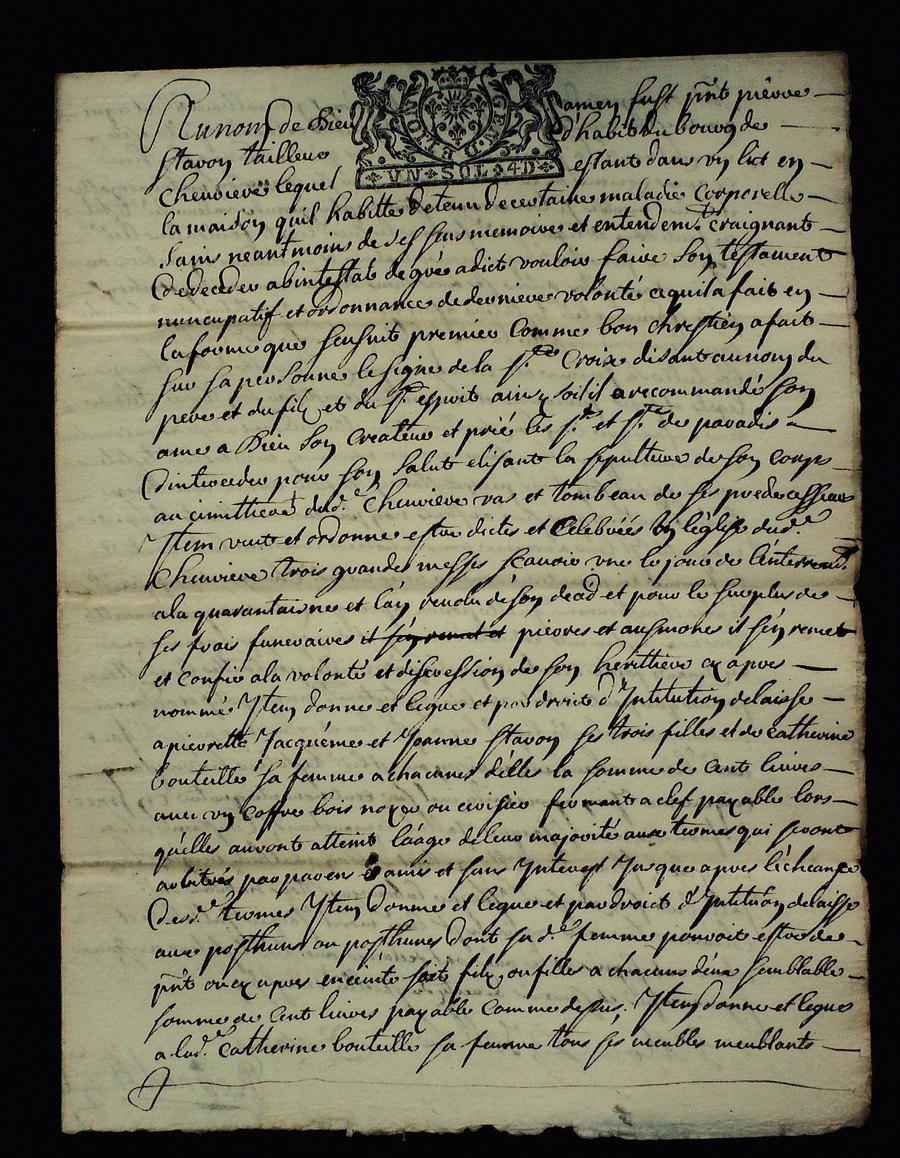 Au nom de Dieu amen fust pñt pierre
Stavon tailleur d'habit du bourg de
Chenviere lequel estant dans vn lict en
GEND DE LION
VN SOL 4D
la maison quil habitte detenu de certaine maladie Corporelle
sains neantmoins de ses sens memoire et entendemt. craignant
de deceder abintestat de gré a dict vouloir faire son testament
nuncupatif et ordonnance de derniere volonté ce quil a fait en
la forme que sensuit premier Comme bon chrestien a fait
sur sa personne le signe de la Ste Croix disant au nom du
pere et du filz et du St esprit ainsy soit il a recommandé son
ame a Dieu son Createur et prié les Sts et Stes de paradis
dinterceder pour son salut elisant la sepulture de son corps
au cimittiere dud. Chenviere vas et tombeau de ses predecesseurs
Ytem veut et ordonne estre dictes et Celebrées En léglise dud.
Chenviere trois grandes messes scavoir vne le jour de l'enterremt.
a la quarantaine et l'an revolu de son decad et pour le surplus de
ses frais funeraires il s'en remet et prieres et aumones il s'en remet
et confie a la volonté et discression de son herittiere cy apres
nommé Ytem donne et legue et par droict d'Ynstitution delaisse
a pierrette Jacquéme et Jeanne Stavon ses trois filles et de catherine
bouteille sa femme a chacunes d'elles la somme de Cent livres
avec vn coffre bois noyer ou cerisier fermant a clef payable lors
qu'elles auront atteint l'aage de leur majorité aux termes qui seront
arbitrés par parens & amis et sans Ynterest Jusque apres l'écheance
desd. termes Ytem donne et legue et par droict d'Ynstitution delaisse
aux posthume ou posthumes dont sad. femme pouroit estre de
pñt ou cy apres enceinte soit filz ou filles a chacuns d'eux semblable
somme de Cent livres payable Comme dessus. Ytem donne et legue
a lad. Catherine bouteille sa femme tous ses meubles meublants